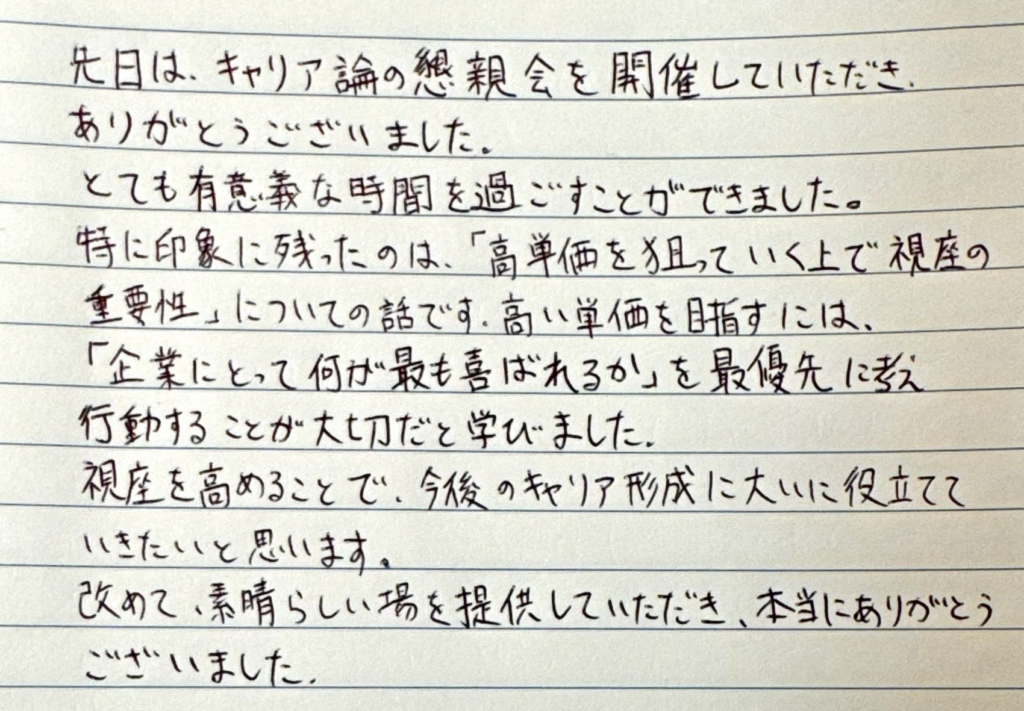 先日は、キャリア論の懇親会を開催していただき、
ありがとうございました。
とても有意義な時間を過ごすことができました。
特に印象に残ったのは、「高単価を狙っていく上で視座の
重要性」についての話です。高い単価を目指すには、
「企業にとって何が最も喜ばれるか」を最優先に考え
行動することが大切だと学びました。
視座を高めることで、今後のキャリア形成に大いに役立てて
いきたいと思います。
改めて、素晴らしい場を提供していただき、本当にありがとう
ございました。